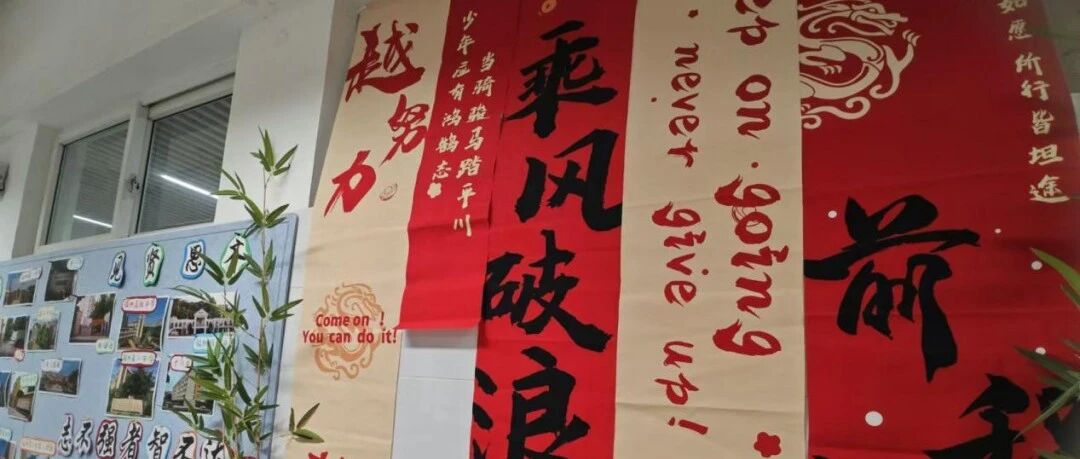 见贤思齐
志不强者智不达
越努力
Come on !
You can do it!
少年应有鸿鹄志
当骑骏马踏平川
乘风破浪
on · going
· never give up!
前
如愿所行皆坦途